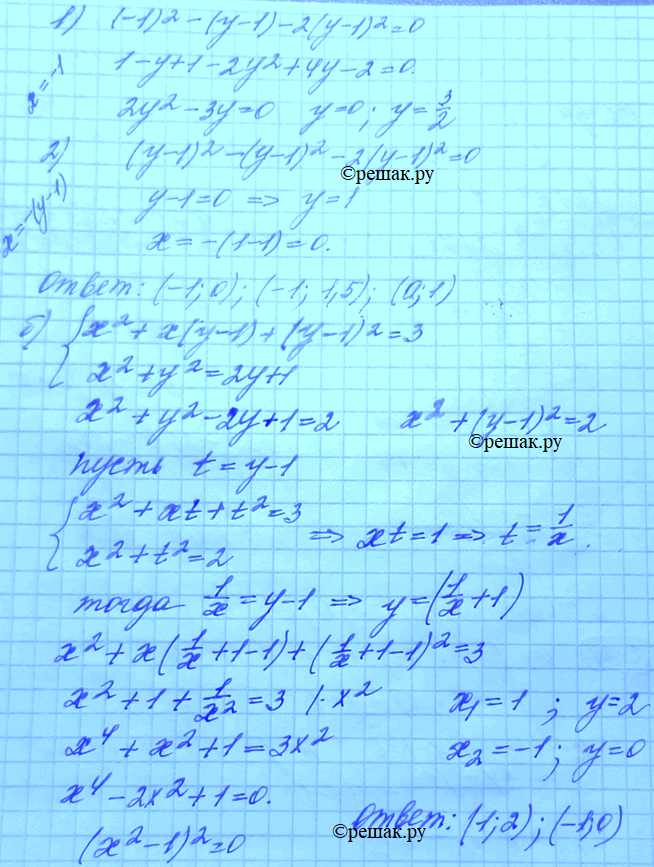 1) (-1)² - (y-1) - 2(y-1)² = 0
x = -1
1 - y + 1 - 2y² + 4y - 2 = 0.
2y² - 3y = 0 y = 0; y = 3/2
2) (y-1)² - (y-1)² - 2(y-1)² = 0
©решак.ру
x = -(y-1)
y - 1 = 0 => y = 1
x = -(1-1) = 0.
ответ: (-1; 0); (-1; 1,5); (0; 1)
б) { x² + x(y-1) + (y-1)² = 3
x² + y² = 2y+1
x² + y² - 2y + 1 = 2 x² + (y-1)² = 2
©решак.ру
пусть t = y-1
{ x² + xt + t² = 3
x² + t² = 2 => xt = 1 => t = 1/x.
тогда 1/x = y-1 => y = (1/x + 1)
x² + x(1/x + 1 - 1) + (1/x + 1 - 1)² = 3
x² + 1 + 1/x² = 3 |·x² x₁ = 1 ; y = 2
x⁴ + x² + 1 = 3x² x₂ = -1; y = 0
x⁴ - 2x² + 1 = 0.
ответ: (1; 2); (-1; 0)
(x² - 1)² = 0
©решак.ру